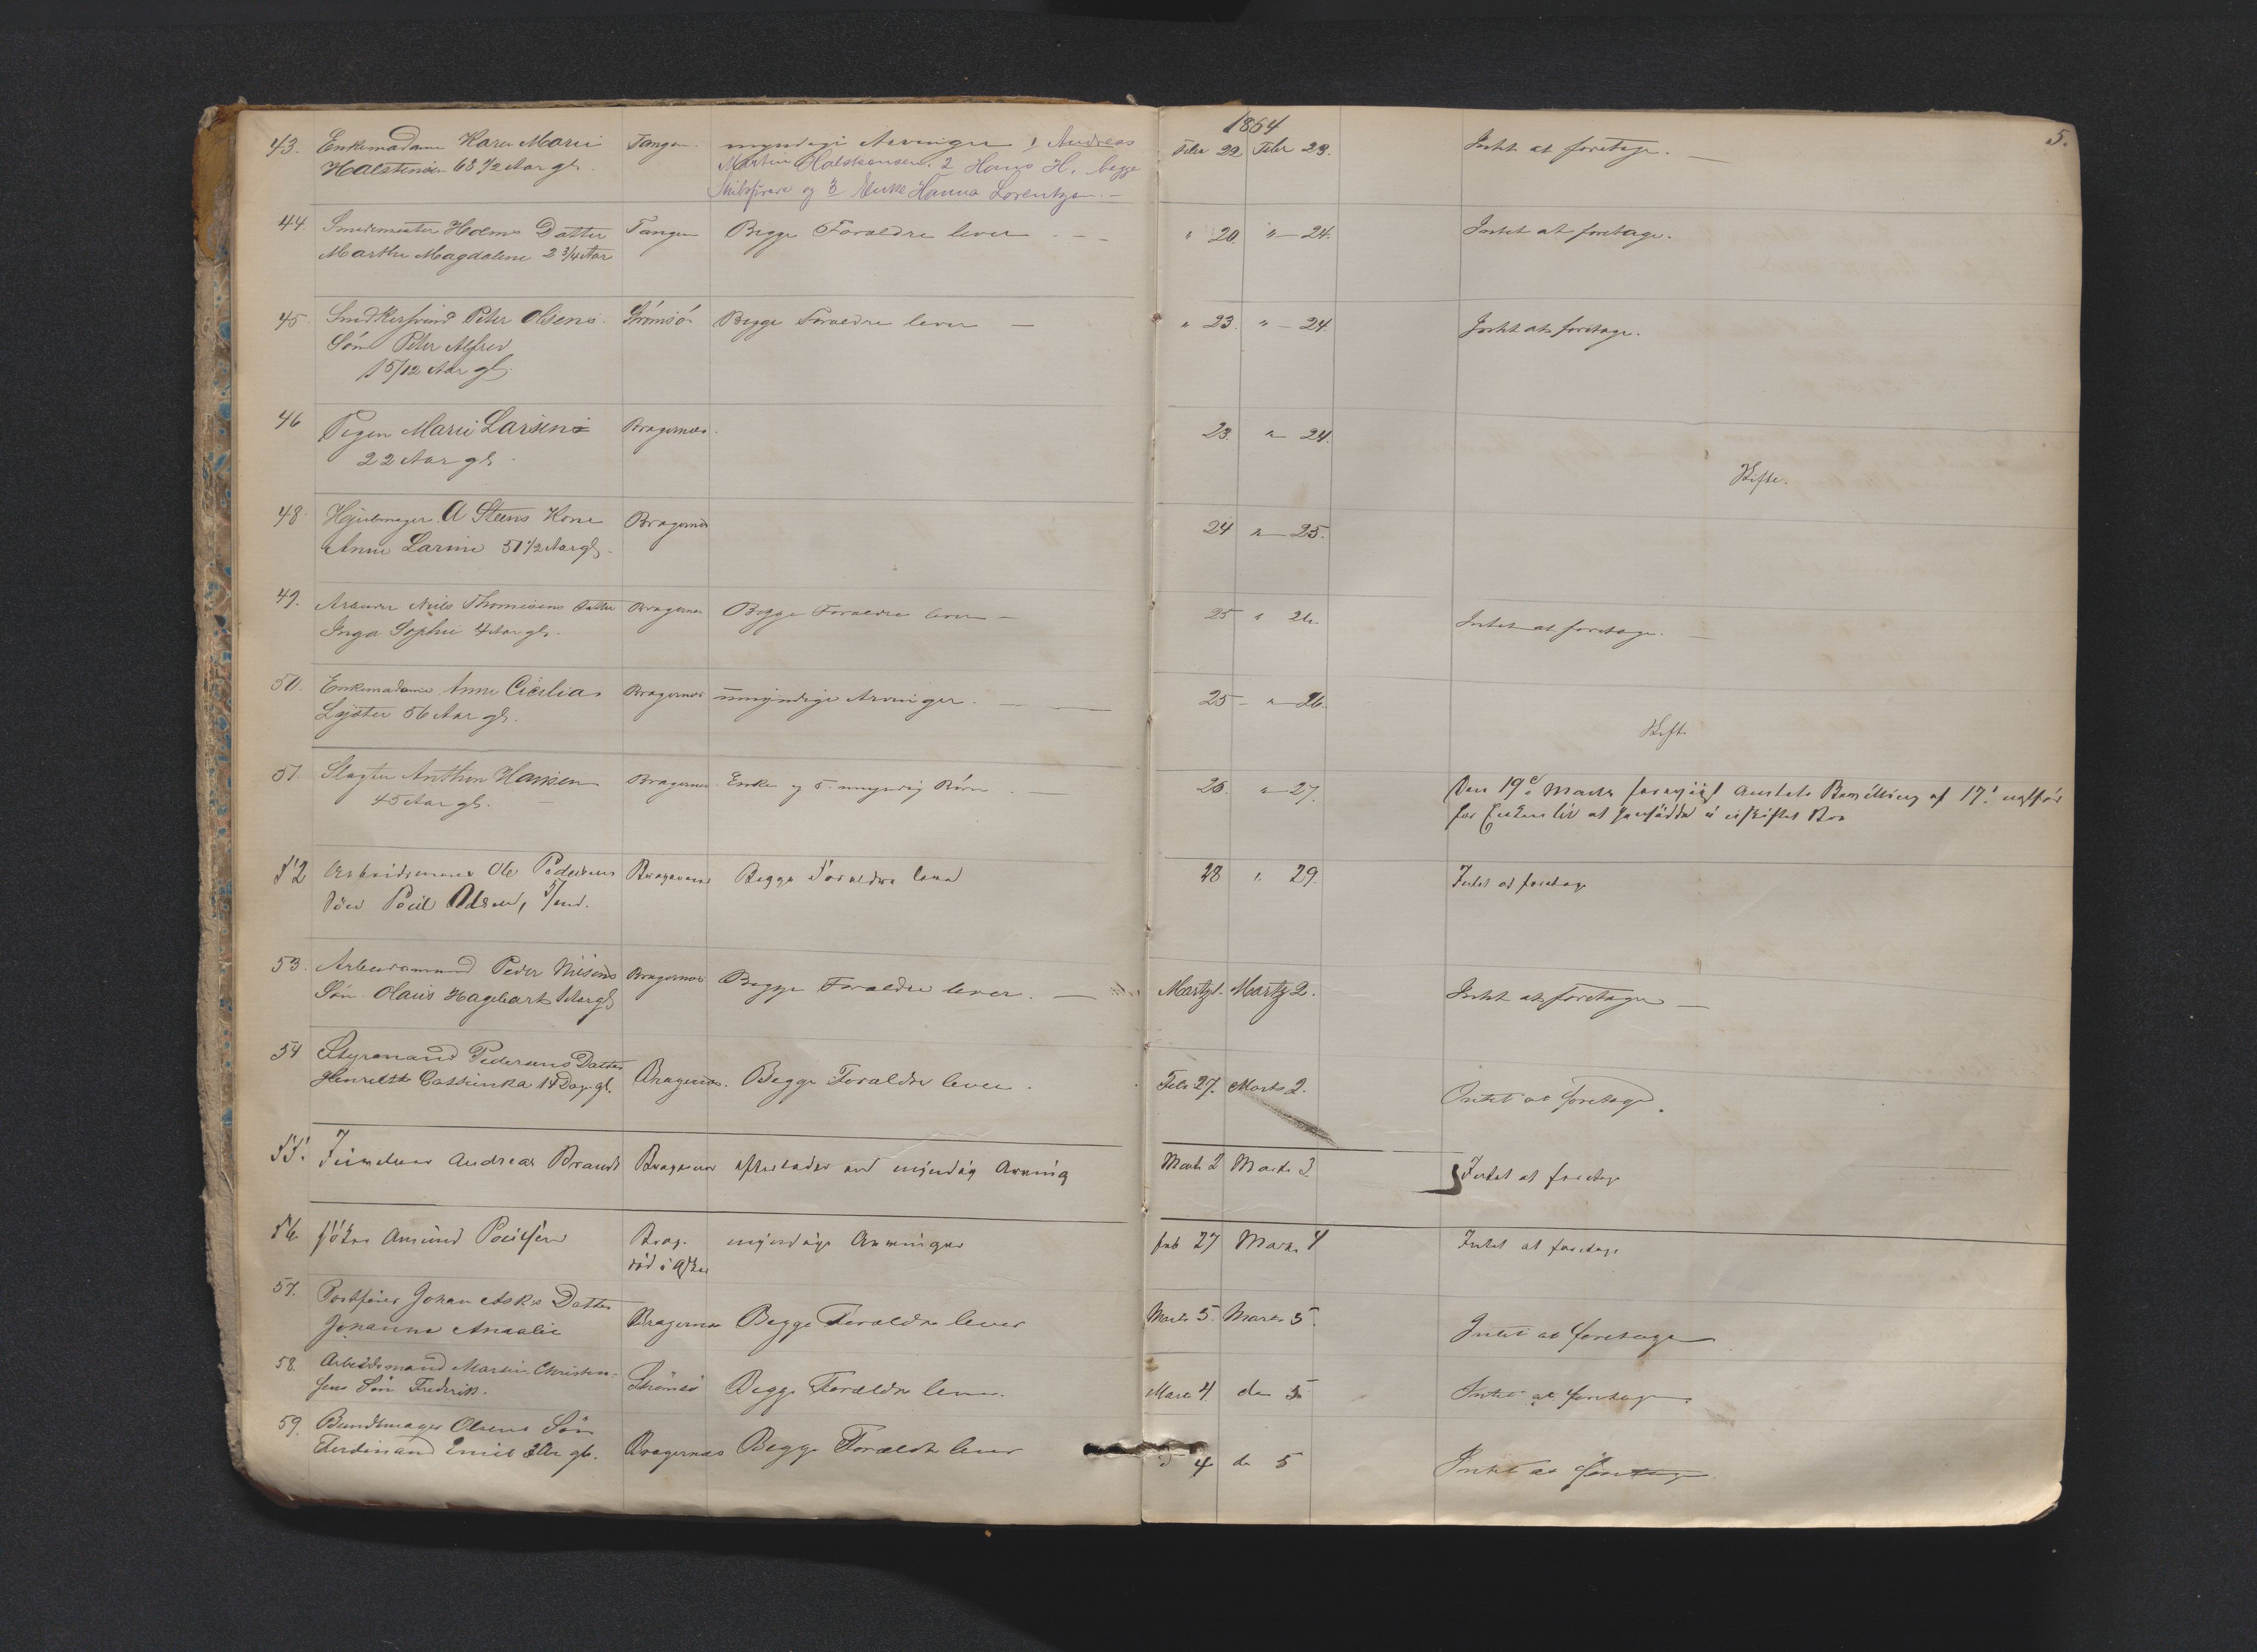 1864
5.
43. Enkemadame Karen Marie Tangen myndige Arvinger 1 Andreas Febr 22 Febr 23. Intet at foretage. —
Halstensen 63 1/2 Aar gl. Martin Halstensen, 2 Hans H. begge
Skibsförere og 3 Enke Hanna Lorentzen. —
44. Smedemester Holms Datter Tangen Begge Forældre lever " 20. " 24. Intet at foretage.
Marthe Magdalene 2 3/4 Aar
45. Smedkersvend Peter Olsens Strömsö Begge Forældre lever — " 23. " 24 Intet at foretage.
Sön Peter Alfred
1 5/12 Aar gl.
46 Pigen Marie Larsen Bragernæs. 23. " 24.
22 Aar gl. Skifte.
48. Hjulmager A Steens Kone Bragernæs 24 " 25.
Anne Larine 51 1/2 Aar gl.
49. Arbeider Niels Thomesens Datter Bragernæs Begge Forældre lever — 25 " 26 Intet at foretage. —
Inga Sophie 4 Aar gl.
50. Enkemadame Anne Cicilia Bragernæs umyndige Arvinger. — 25 " 26.
56 Aar gl. Skift.
51. Slagter Anthon Hansen Bragernæs. Enke og 5 umyndig Börn. 26. " 27. Den 19de Marts Bevilling af 17.
45 Aar gl. — for Enken til at hensidde i uskiftet Bo
52 Arbeidsmand Ole Pedersens Bragernæs Begge Forældre lever 28 " 29. Intet at foretage
Sön Poul Olsen,
53. Arbeidsmand Peder Nilsens Bragernæs Begge Forældre lever. — Martz 1. Martz 2. Intet at foretage —
Sön Olaus Hagebart Aar gl
54 Styrmand Pedersens Datter
Henrette Cathinka 14 Dage gl. Bragernæs. Begge Forældre lever. Febr 27. Marts 2. Intet at foretage.
55. Andreas Brandt Bragernæs efterlader en myndig Arving Marts 2 Marts 3 Intet at foretage
56. Amund Poulsen Brag. myndige Arvinger feb 27 Marts 4 Intet at foretage
död i Asker
57. Postförer Johan Asks Datter
Johanna Amalie Bragernæs Begge Forældre lever Marts 5. Marts 5. Intet at foretage
58. Arbeidsmand Martin Christen-
sens Sön Frederik. Strömsö Begge Forældre lever. Marts 4. do 5 Intet at foretage
59. Bundtmager Olsens Sön
Ferdinand Emil Aar gl. Bragernæs Begge Forældre lever 4 do 5 Intet at foretage